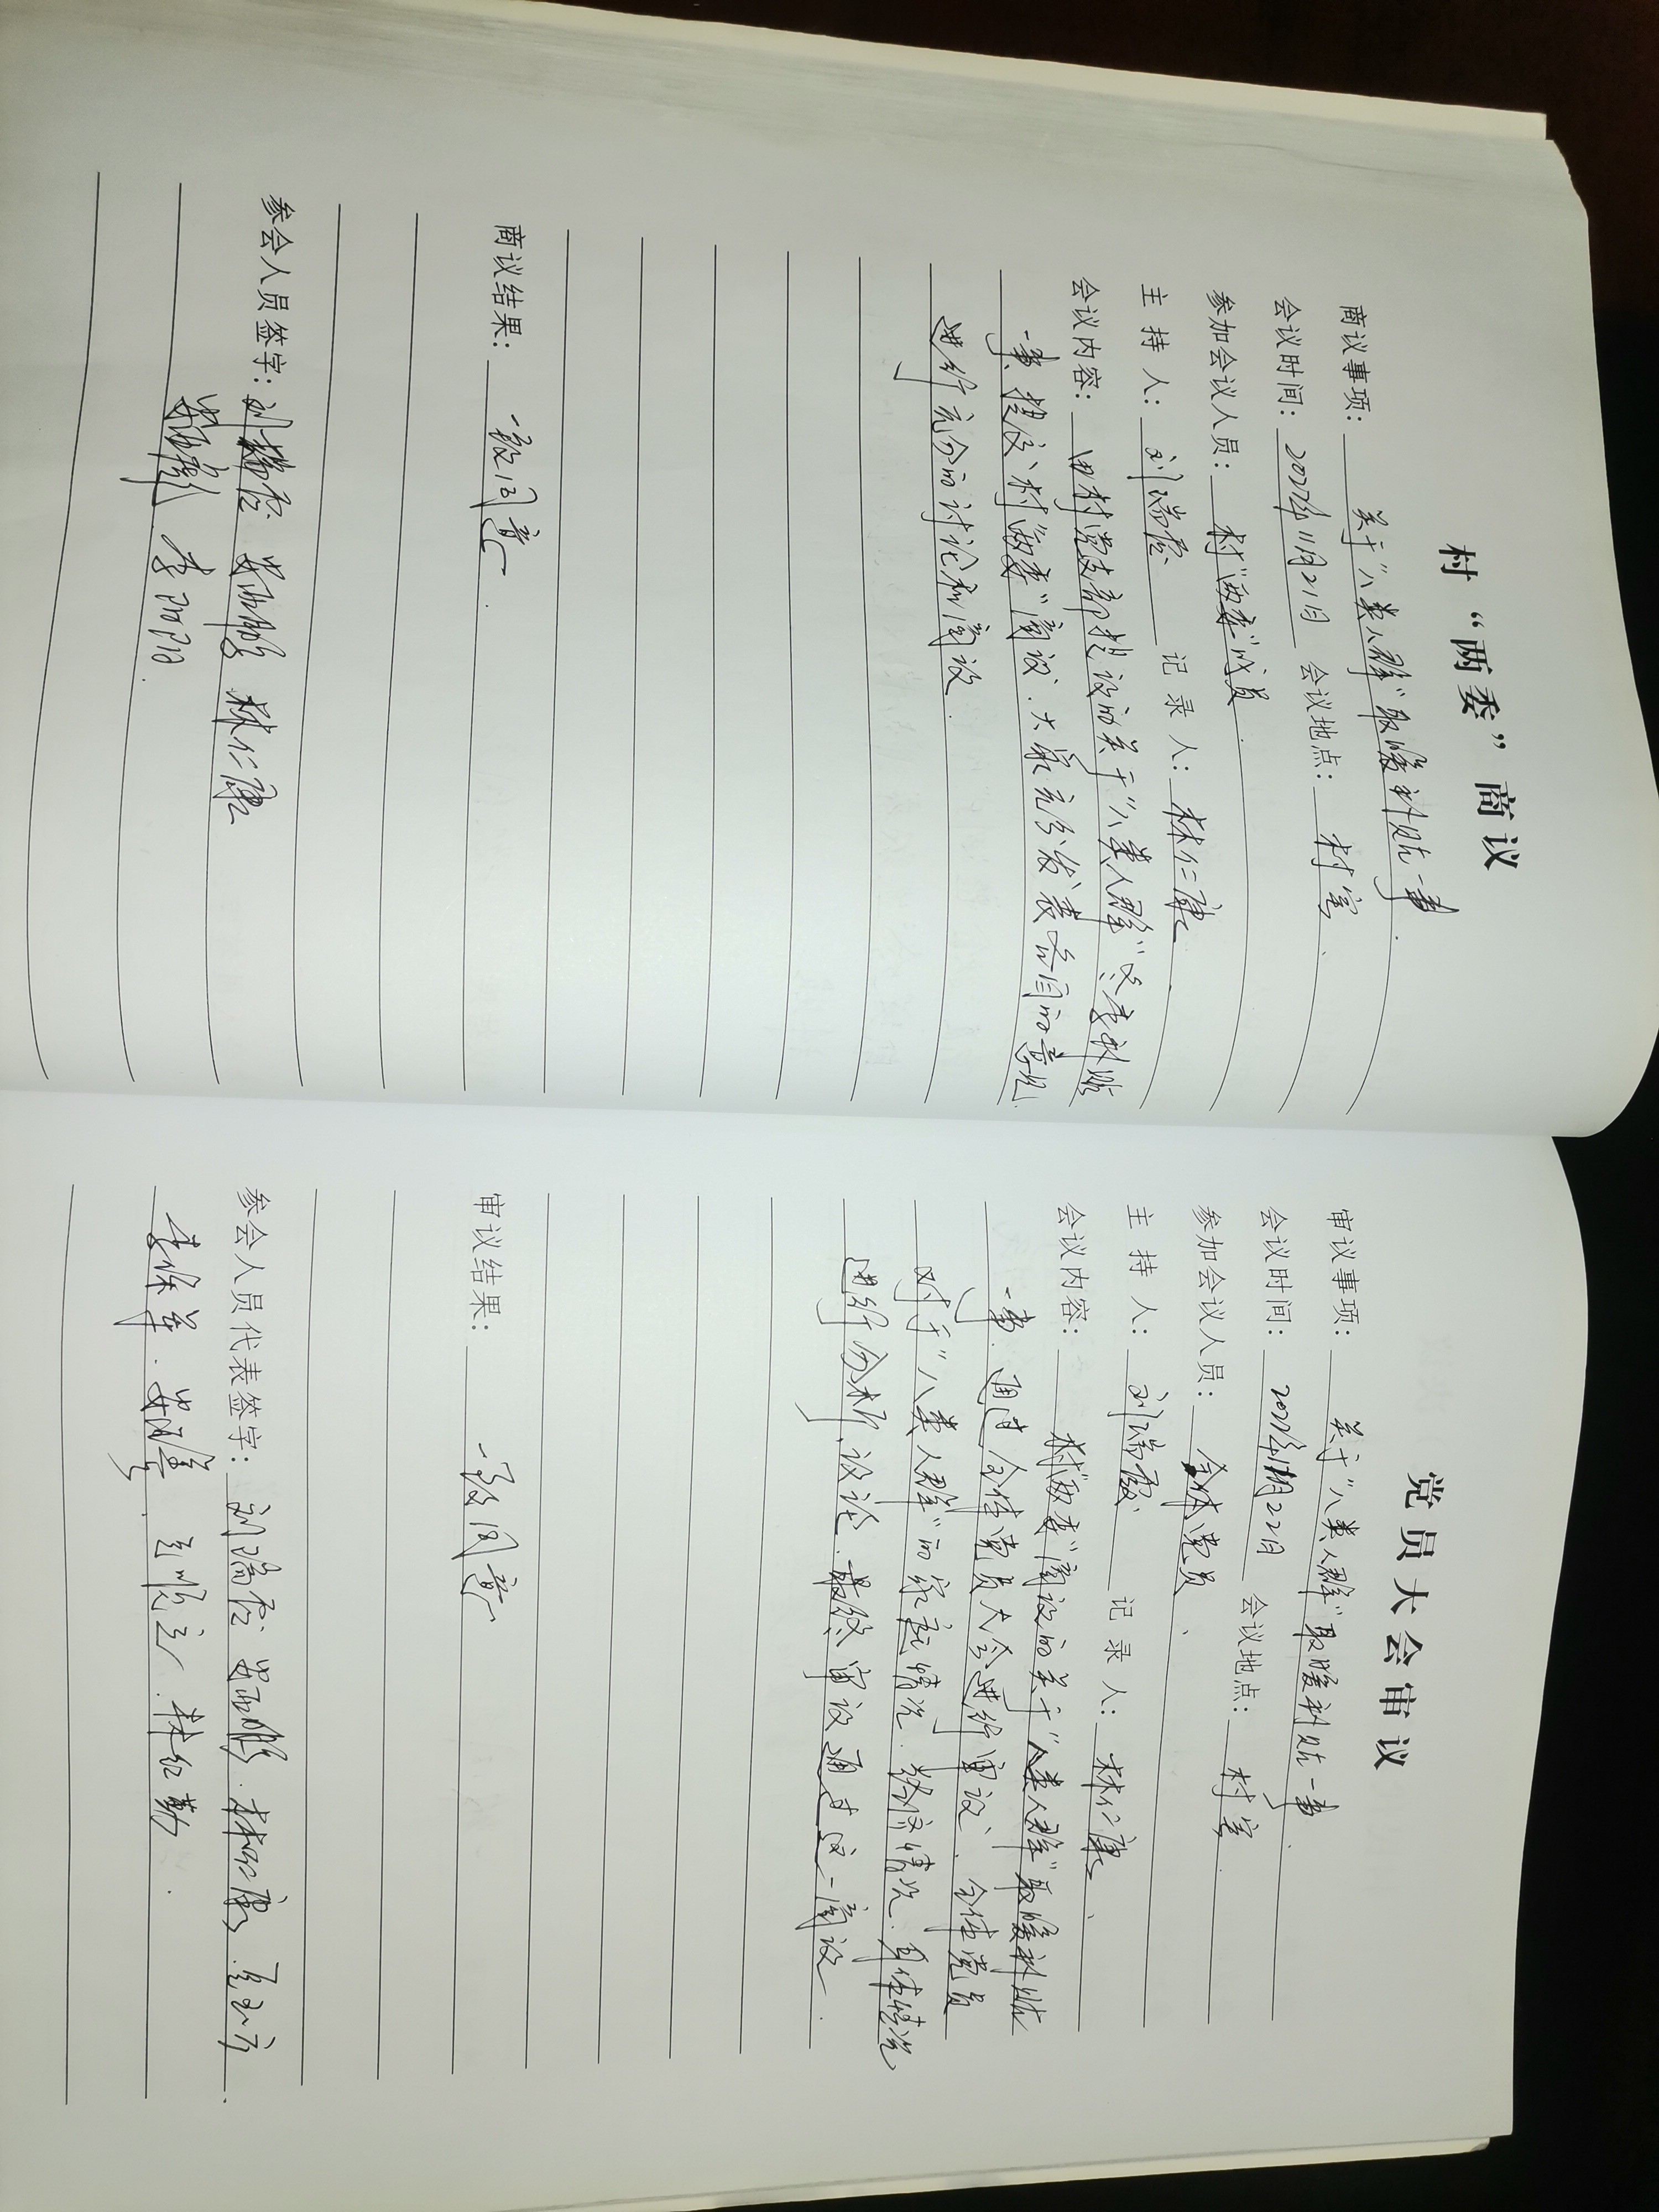 村“两委”商议
商议事项：关于“八类人群”取暖补贴一事.
会议时间：2022年11月21日 会议地点：村室.
参加会议人员：村“两委”成员.
主 持 人：刘瑞霞 记 录 人：林仁康.
会议内容：由村党支部提议的关于“八类人群”冬季补贴
一事.提交村“两委”商议.大家充分发表各自的意见.
进行充分的讨论和商议.
商议结果：一致同意.
参会人员签字：刘瑞霞 安西鹏 林仁康
安西彪 李阳阳.
党员大会审议
审议事项：关于“八类人群”取暖补贴一事.
会议时间：2022年11月22日 会议地点：村室.
参加会议人员：全体党员.
主 持 人：刘瑞霞 记 录 人：林仁康.
会议内容：村“两委”商议的关于“八类人群”取暖补贴
一事.通过全体党员大会进行审议.全体党员
对于“八类人群”的家庭情况.经济情况.身体情况
进行分析、议论.最终审议通过这一商议.
审议结果：一致同意
参会人员代表签字：刘瑞霞 安西鹏.林仁康.
李保军.林红勤.